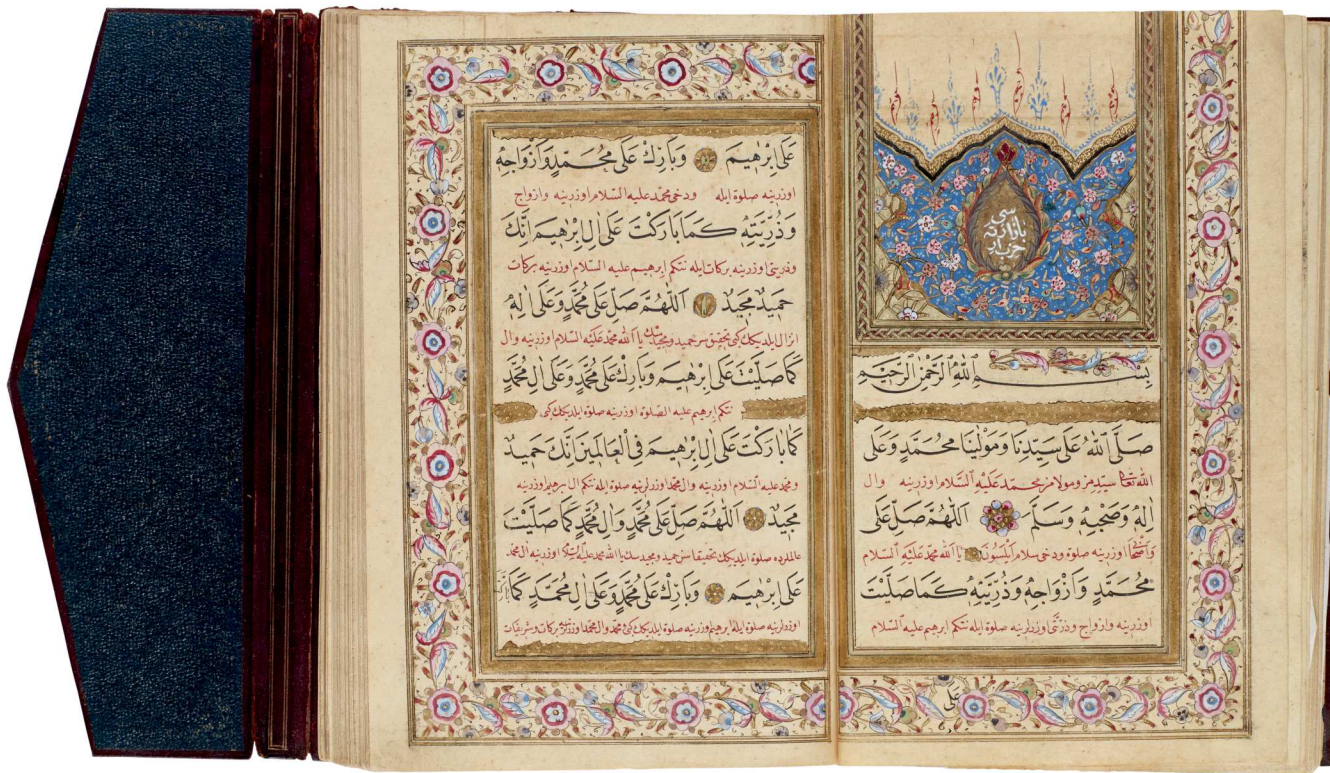 سى
بسم الله الرحمن الرحيم
صَلَّى اللهُ عَلَى سَيِّدِنَا وَمَوْلٰينَا مُحَمَّدٍ وَعَلَى
الله تعالى سيدمز ومولامز محمد عليه السلام اوزرينه وال
اٰلِهٖ وَصَحْبِهٖ وَسَلَّمَ اَللّٰهُمَّ صَلِّ عَلٰى
اوزرينه صلوة ودخى سلام ايلسون يا الله محمد عليه السلام
مُحَمَّدٍ وَاَزْوَاجِهٖ وَذُرِّيَّتِهٖ كَمَا صَلَّيْتَ
اوزرينه وازواج وذرتى اوزرلرينه صلوة ايله نتكم ابرهيم عليه السلام
على
عَلٰى اِبْرٰهِيمَ وَبَارِكْ عَلٰى مُحَمَّدٍ وَاَزْوَاجِهٖ
اوزرينه صلوة ايله ودخى محمد عليه السلام اوزرينه وازواج
وَذُرِّيَّتِهٖ كَمَا بَارَكْتَ عَلٰى اٰلِ اِبْرٰهِيمَ اِنَّكَ
وذريتى اوزرينه بركات ايله نتكم ابرهيم عليه السلام اوزرينه بركات
حَمِيدٌ مَجِيدٌ اَللّٰهُمَّ صَلِّ عَلٰى مُحَمَّدٍ وَعَلٰى اٰلِهٖ
انزال ايلديكك كى تحقيق سن حميد ومجيدسك يا الله محمد عليه السلام اوزرينه وال
كَمَا صَلَّيْتَ عَلٰى اِبْرٰهِيمَ وَبَارِكْ عَلٰى مُحَمَّدٍ وَعَلٰى اٰلِ مُحَمَّدٍ
نتكم ابرهيم عليه الصلوة اوزرينه صلوة ايلديكك كى
كَمَا بَارَكْتَ عَلٰى اٰلِ اِبْرٰهِيمَ فِى الْعَالَمِينَ اِنَّكَ حَمِيدٌ
ومحمد عليه السلام اوزرينه وال محمد اوزرلرينه صلوة ايله نتكم ال ابرهيم اوزرينه
مَجِيدٌ اَللّٰهُمَّ صَلِّ عَلٰى مُحَمَّدٍ وَاٰلِ مُحَمَّدٍ كَمَا صَلَّيْتَ
عالملرده صلوة ايلديكك تحقيقا سن حميد ومجيدسك يا الله محمد عليه السلام اوزرينه ال محمد
عَلٰى اِبْرٰهِيمَ وَبَارِكْ عَلٰى مُحَمَّدٍ وَعَلٰى اٰلِ مُحَمَّدٍ كَمَا
اوزرلرينه صلوة ايله ابرهيم اوزرينه صلوة ايلديكك كى محمد وال محمد